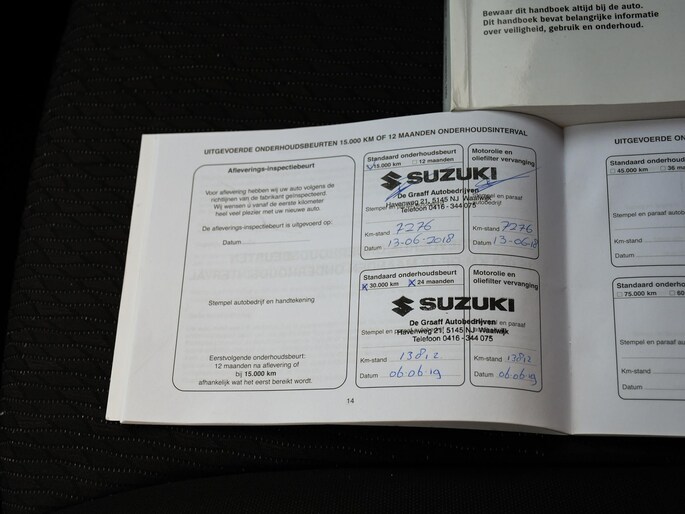 Bewaar dit handboek altijd bij de auto.
Dit handboek bevat belangrijke informatie
over veiligheid, gebruik en onderhoud.
UITGEVOERDE ONDERHOUDSBEURTEN 15.000 KM OF 12 MAANDEN ONDERHOUDSINTERVAL
Afleverings-inspectiebeurt
Voor aflevering hebben wij uw auto volgens de
richtlijnen van de fabrikant geïnspecteerd.
Wij wensen u vanaf de eerste kilometer
heel veel plezier met uw nieuwe auto.
De afleverings-inspectiebeurt is uitgevoerd op:
Datum
Stempel autobedrijf en handtekening
Eerstvolgende onderhoudsbeurt:
12 maanden na aflevering of
bij 15.000 km
afhankelijk wat het eerst bereikt wordt.
Standaard onderhoudsbeurt
15.000 km 12 maanden
Motorolie en
oliefilter vervanging
SUZUKI
De Graaff Autobedrijven
Havenweg 21, 5145 NJ Waalwijk
Telefoon 0416 - 344 075
Stempel en paraaf
Km-stand 7276
Datum 13-06-2018
Km-stand 7276
Datum 13-06-18
Standaard onderhoudsbeurt
30.000 km 24 maanden
Motorolie en
oliefilter vervanging
SUZUKI
De Graaff Autobedrijven
Havenweg 21, 5145 NJ Waalwijk
Telefoon 0416 - 344 075
Stempel en paraaf
Km-stand 13812
Datum 06-06-19
Km-stand 13812
Datum 06-06-19
14
UITGEVOERDE ON
Standaard o
45.000 km 36 ma
Stempel en paraaf autob
Km-stand
Datum
Standaard ond
75.000 km 60
Stempel en paraaf
Km-stand
Datum